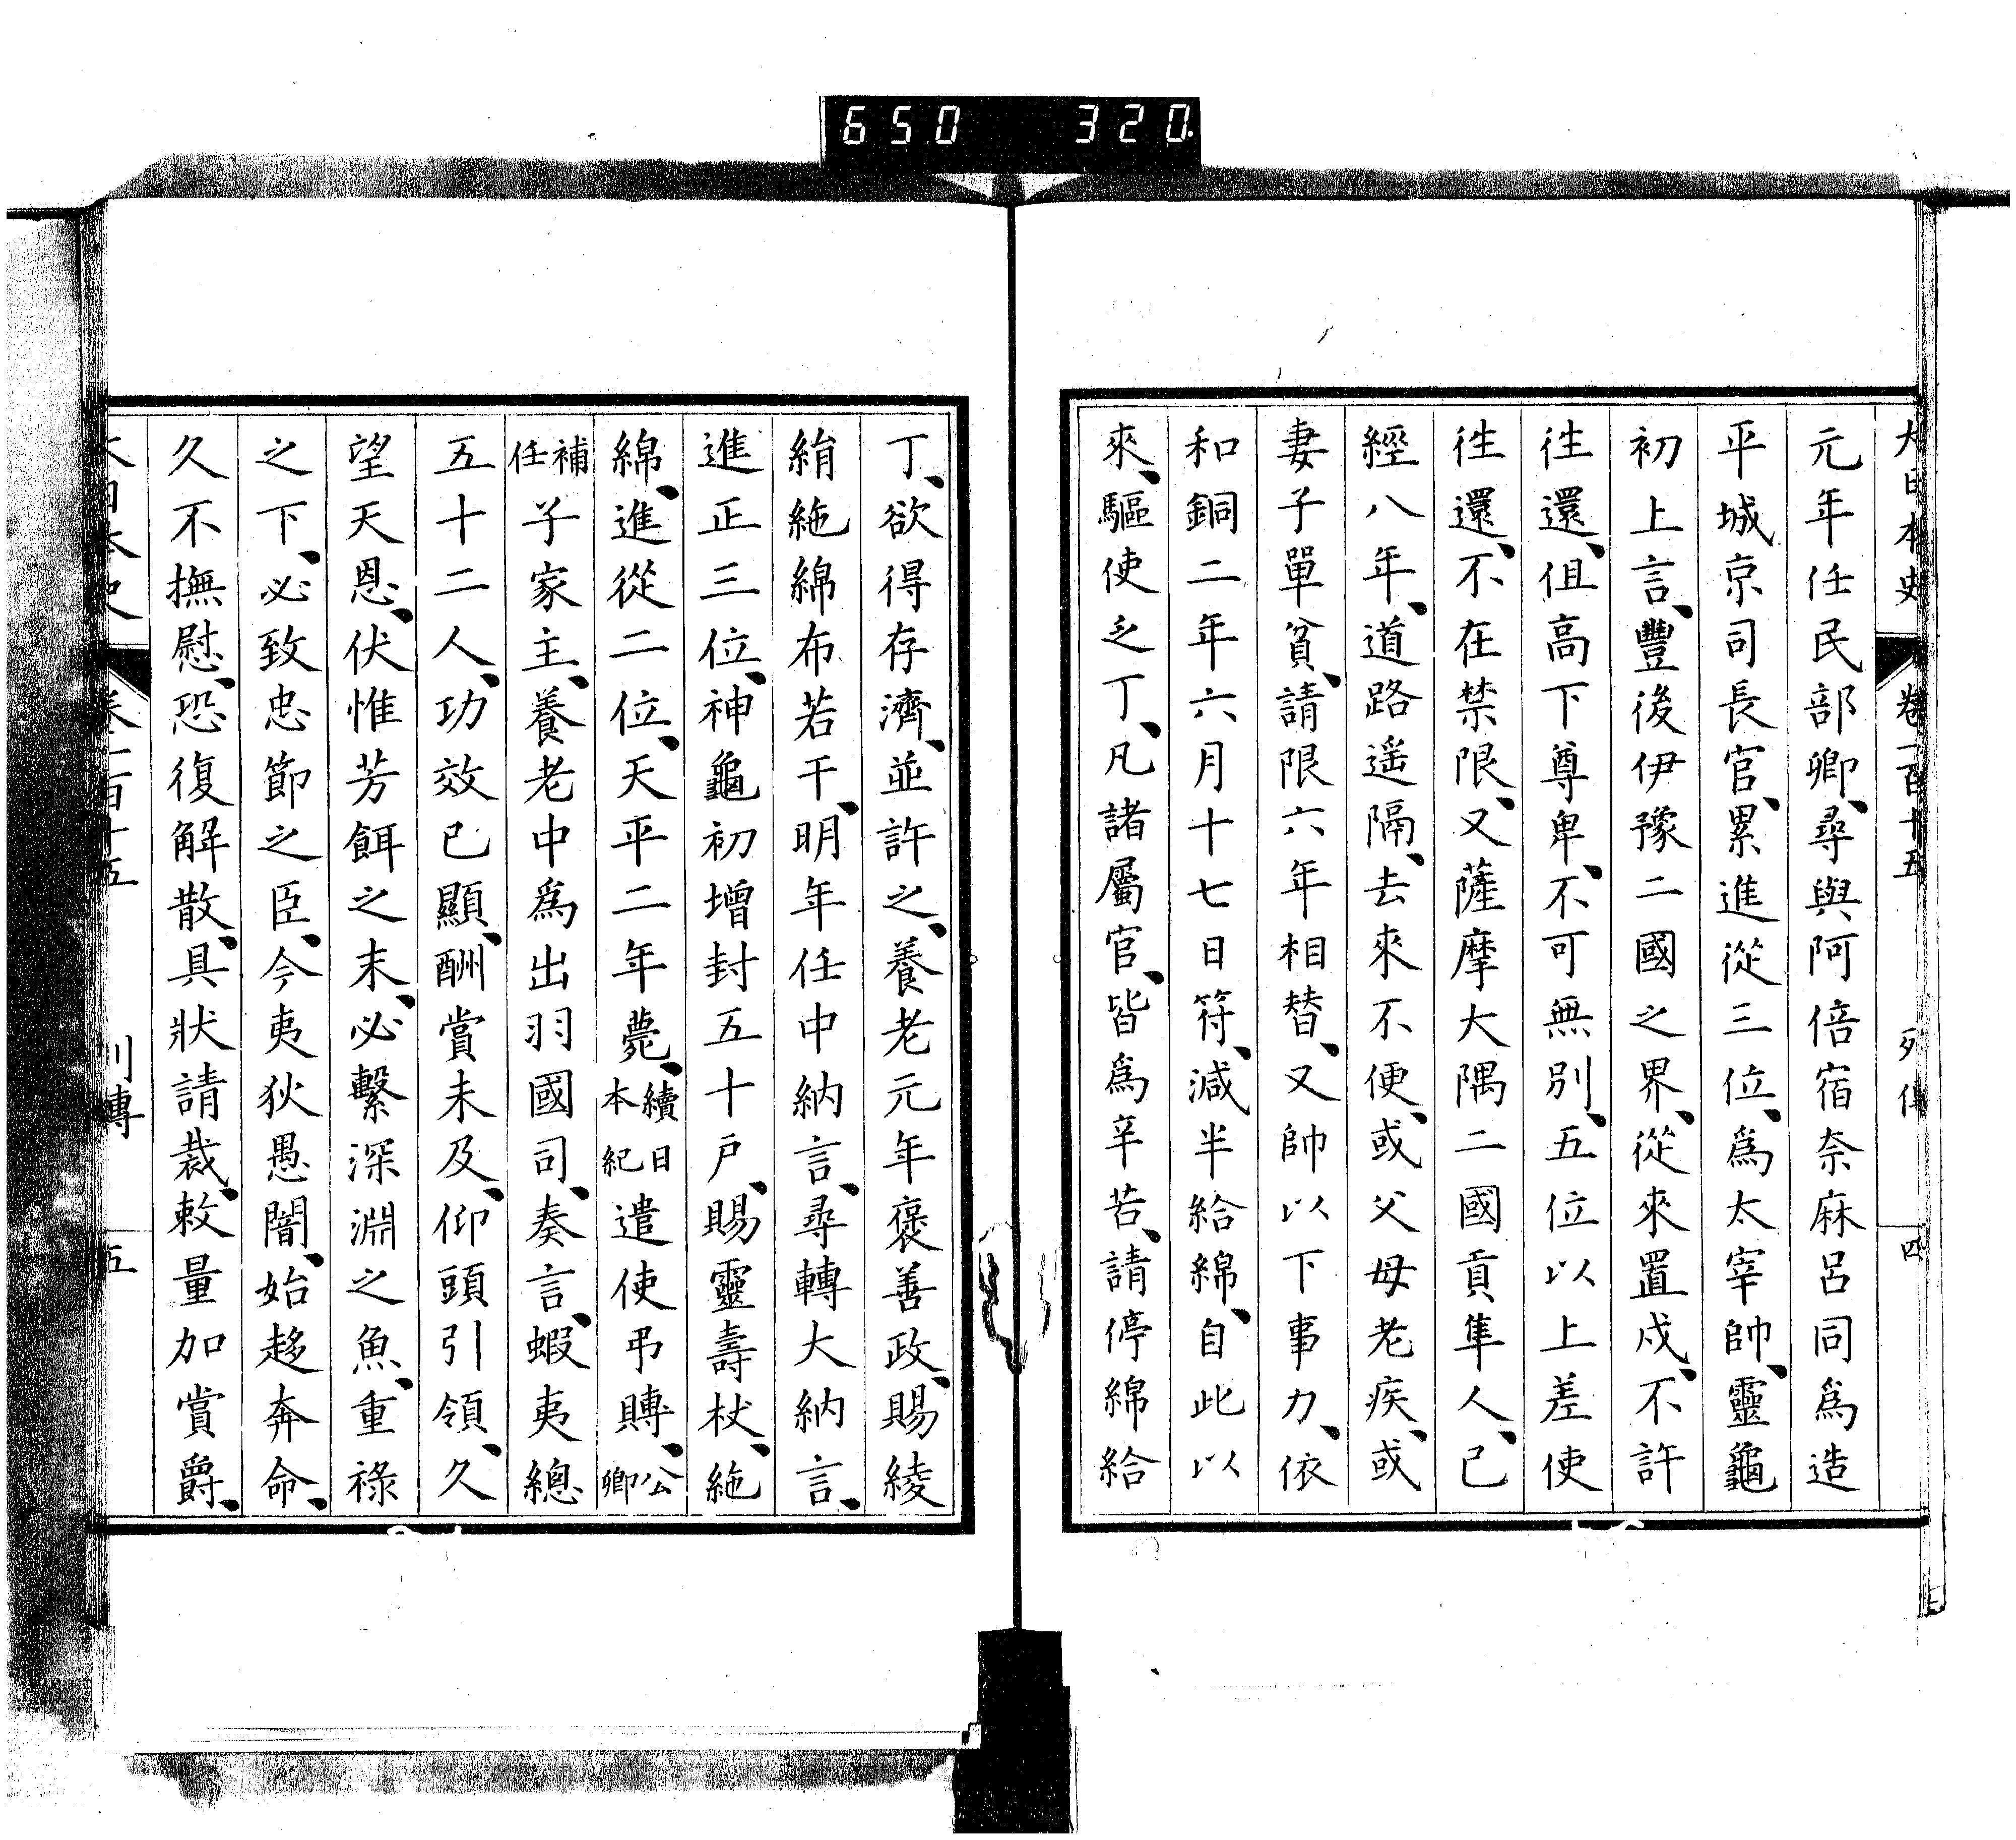 650 320
大日本史 卷一百十五 列傳 四
元年任民部卿、尋與阿倍宿奈麻呂同爲造
平城京司長官、累進從三位、爲太宰帥、靈龜
初上言、豐後伊豫二國之界、從來置戍、不許
徃還、但高下尊卑、不可無別、五位以上差使
徃還、不在禁限、又薩摩大隅二國貢隼人、已
經八年、道路遥隔、去來不便、或父母老疾、或
妻子單貧、請限六年相替、又帥以下事力、依
和銅二年六月十七日符、減半給綿、自此以
來、驅使乏丁、凡諸屬官、皆爲辛苦、請停綿給
丁、欲得存濟、並許之、養老元年褒善政、賜綾
絹絁綿布若干、明年任中納言、尋轉大納言、
進正三位、神龜初增封五十戶、賜靈壽杖、絁
綿、進從二位、天平二年薨、續日本紀遣使弔賻、公卿
補任子家主、養老中爲出羽國司、奏言、蝦夷總
五十二人、功效已顯、酬賞未及、仰頭引領、久
望天恩、伏惟芳餌之末、必繫深淵之魚、重祿
之下、必致忠節之臣、今夷狄愚闇、始趍奔命、
久不撫慰、恐復解散、具狀請裁、敕量加賞爵、
大日本史 卷一百十五 列傳 五